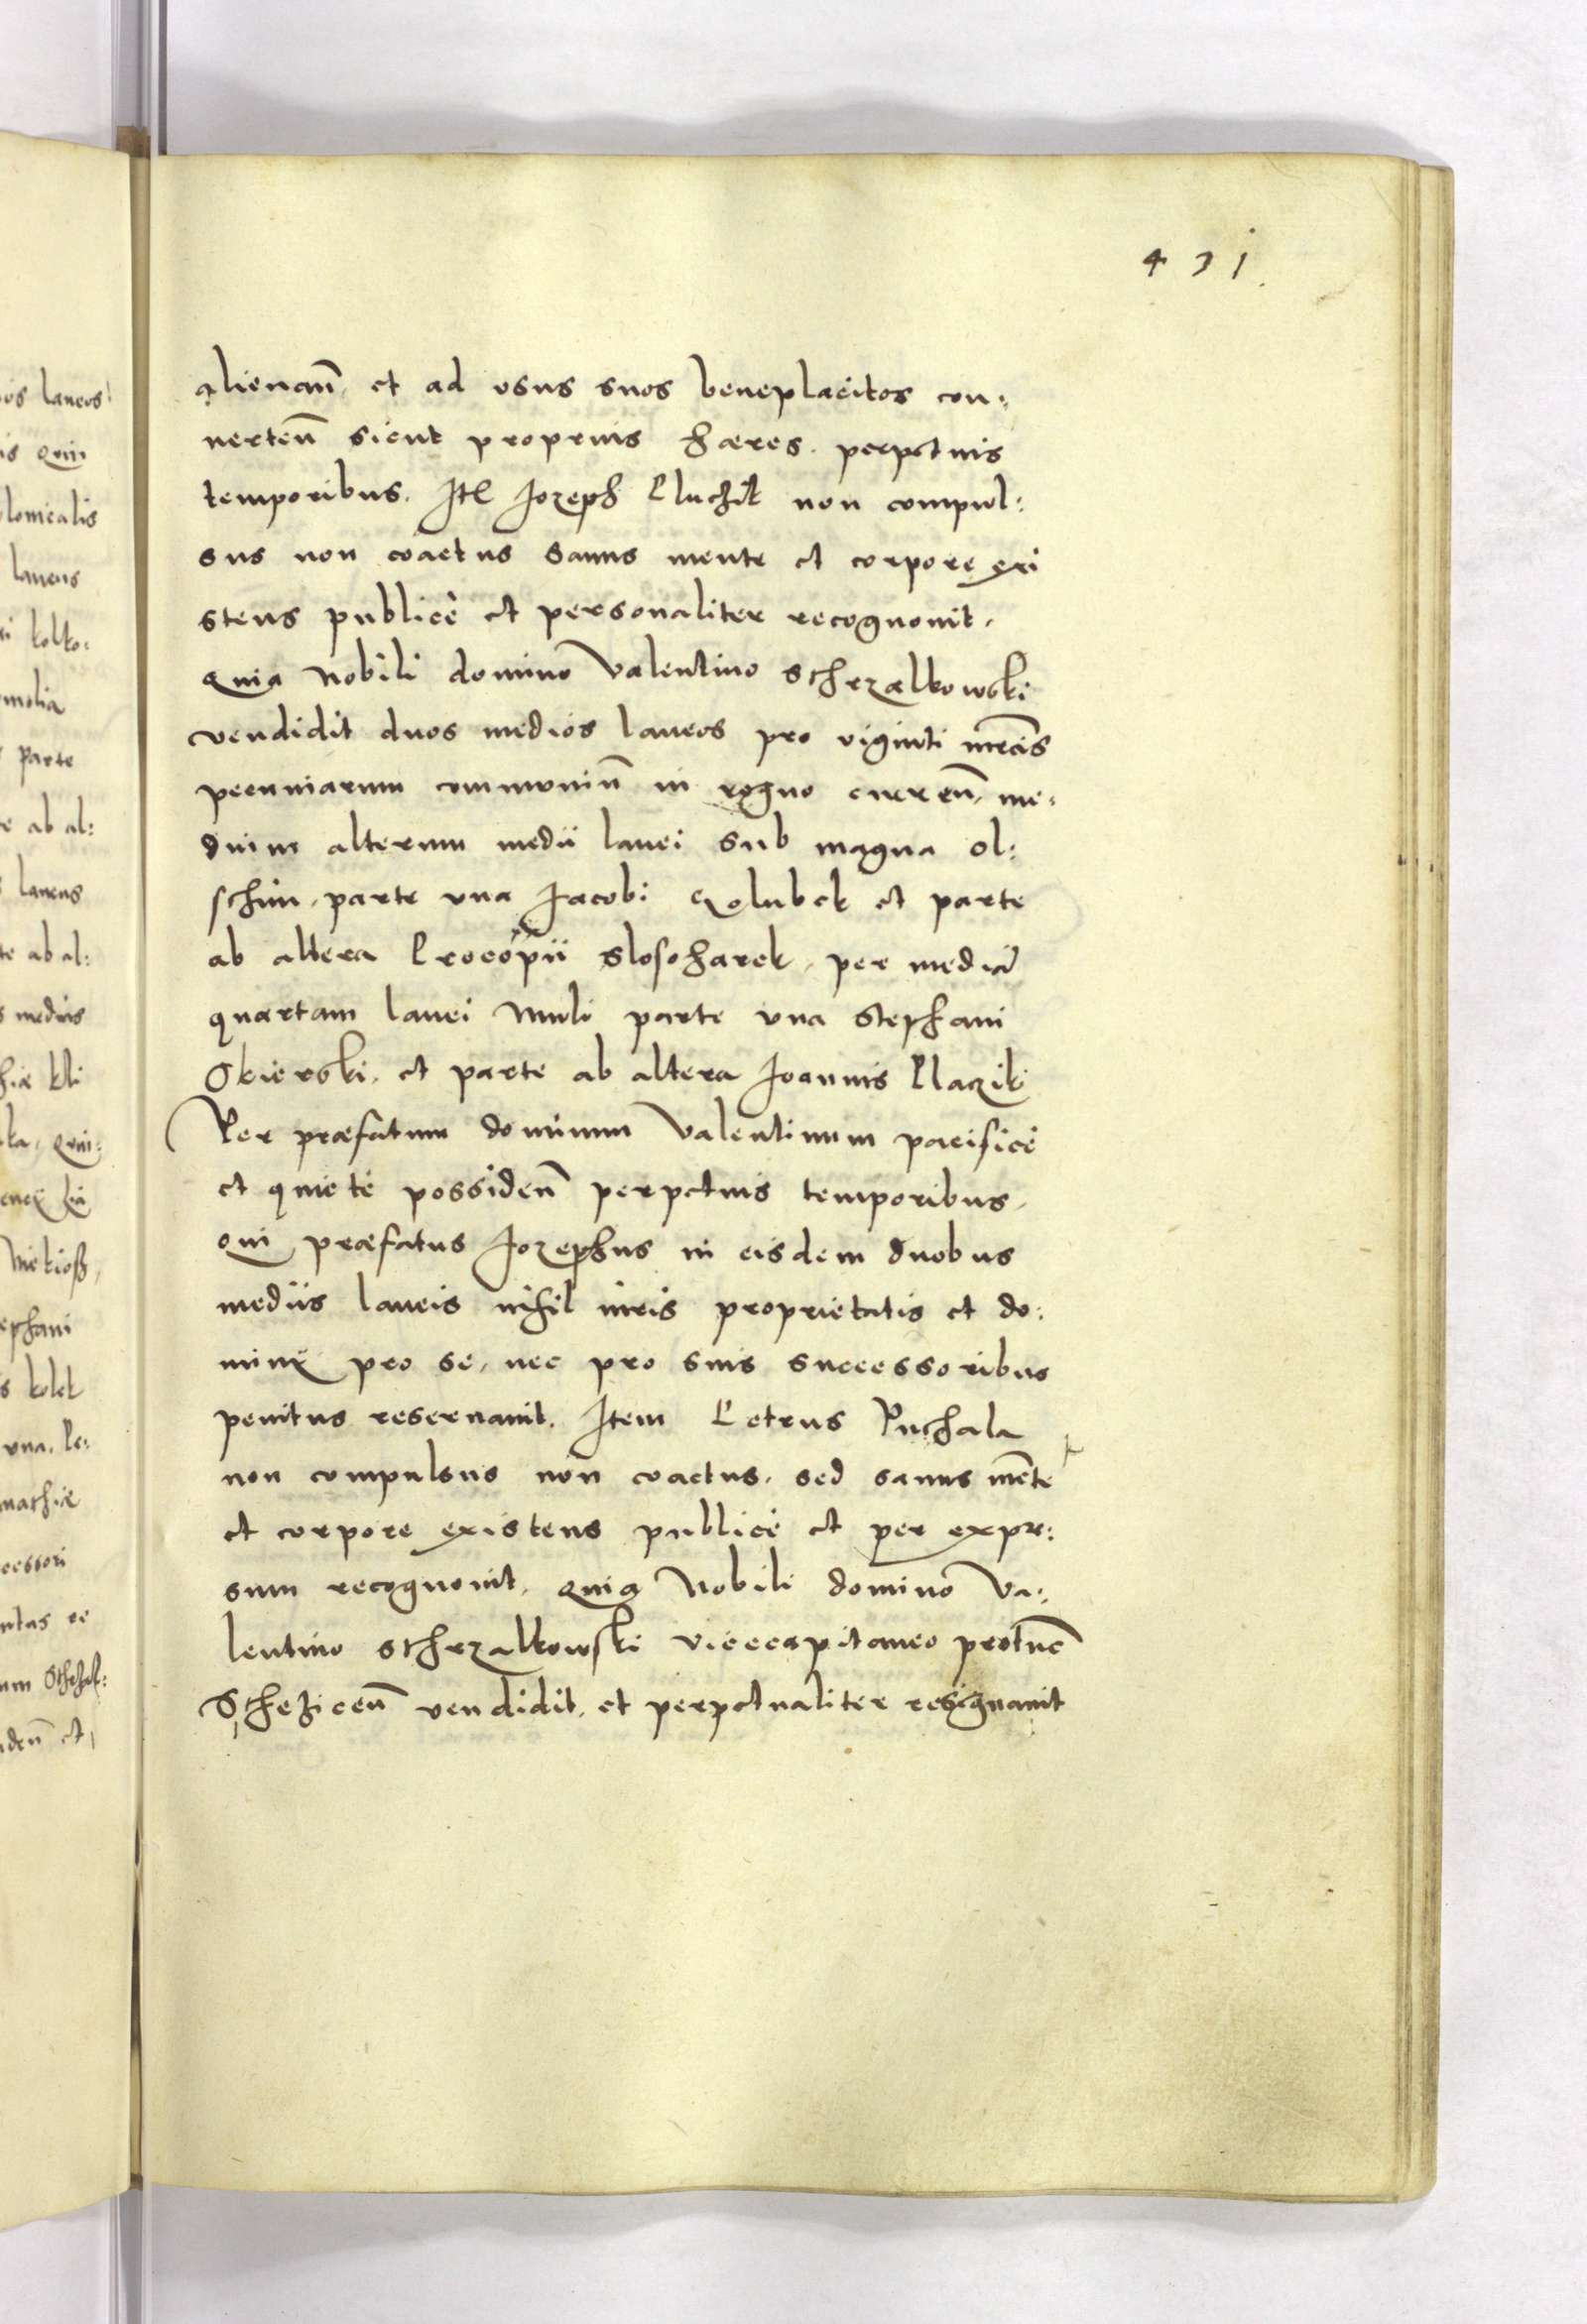 431
alienan̄. et ad usus suos beneplacitos con:
uerten̄ sicut proprius hæres. perpetuis
temporibus. Itē Iozeph Pluchik non compul:
sus non coactus sanus mente et corpore exi
stens publicè et personaliter recognouit.
Quia nobili domino Valentino Schrzalkowski
vendidit duos medios laneos pro viginti mrcis
pecuniarum communiū in regno curren̄. me:
dium alterum medii lanei sub magna ol:
schin. parte una Iacobi Golubek et parte
ab altera Procopii Slosoharek. per mediā
quartam lanei muli parte una Stephani
Skierski. et parte ab altera Ioannis Placzik
Per præfatum dominum Valentinum pacificè
et quietè possiden̄ perpetuis temporibus.
qui præfatus Iozephus in eisdem duobus
mediis laneis nihil iuris proprietatis et do:
minii pro se. nec pro suis successoribus
penitus reseruauit. Item Petrus Puchala
non compulsus non coactus. sed sanus mēte
et corpore existens publicè et per expr:
sum recognouit. Quia nobili domino Va:
lentino Schrzalkowski vicecapitaneo protūc
Schezicen̄ vendidit. et perpetualiter resignauit
os laneos
is Qui
lonicalis
laneus
kolko:
molia
parte
e ab al:
laneus
te ab al:
s medius
hiæ kli
ka. Qui:
Mikiosz.
ephani
s kolek
una. Pe:
mathiæ
cessori
ntas re
um Schchaf:
iden̄ et